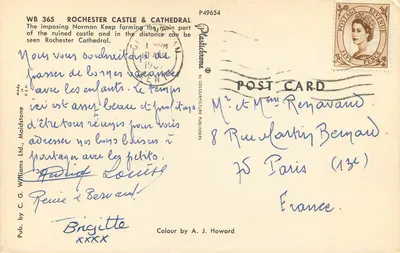 WB 365 ROCHESTER CASTLE & CATHEDRAL
The imposing Norman Keep forming the main part
of the ruined castle and in the distance can be
seen Rochester Cathedral.
P49654
Nous vous souhaitons de
passer de bonnes vacances
avec les enfants. Le temps
ici est assez beau et profitons
d'être tous réunis pour vous
adresser nos bons baisers à
partager avec les petits.
Louise
Brigitte
xxxx
Pub. by C. G. Williams Ltd., Maidstone
Plastichrome
by COLOURPICTURE PUBLISHERS
POSTAGE REVENUE
POST CARD
Mr et Mme Renavand
8 Rue Martin Bernard
75 Paris (13e)
France.
Colour by A. J. Howard